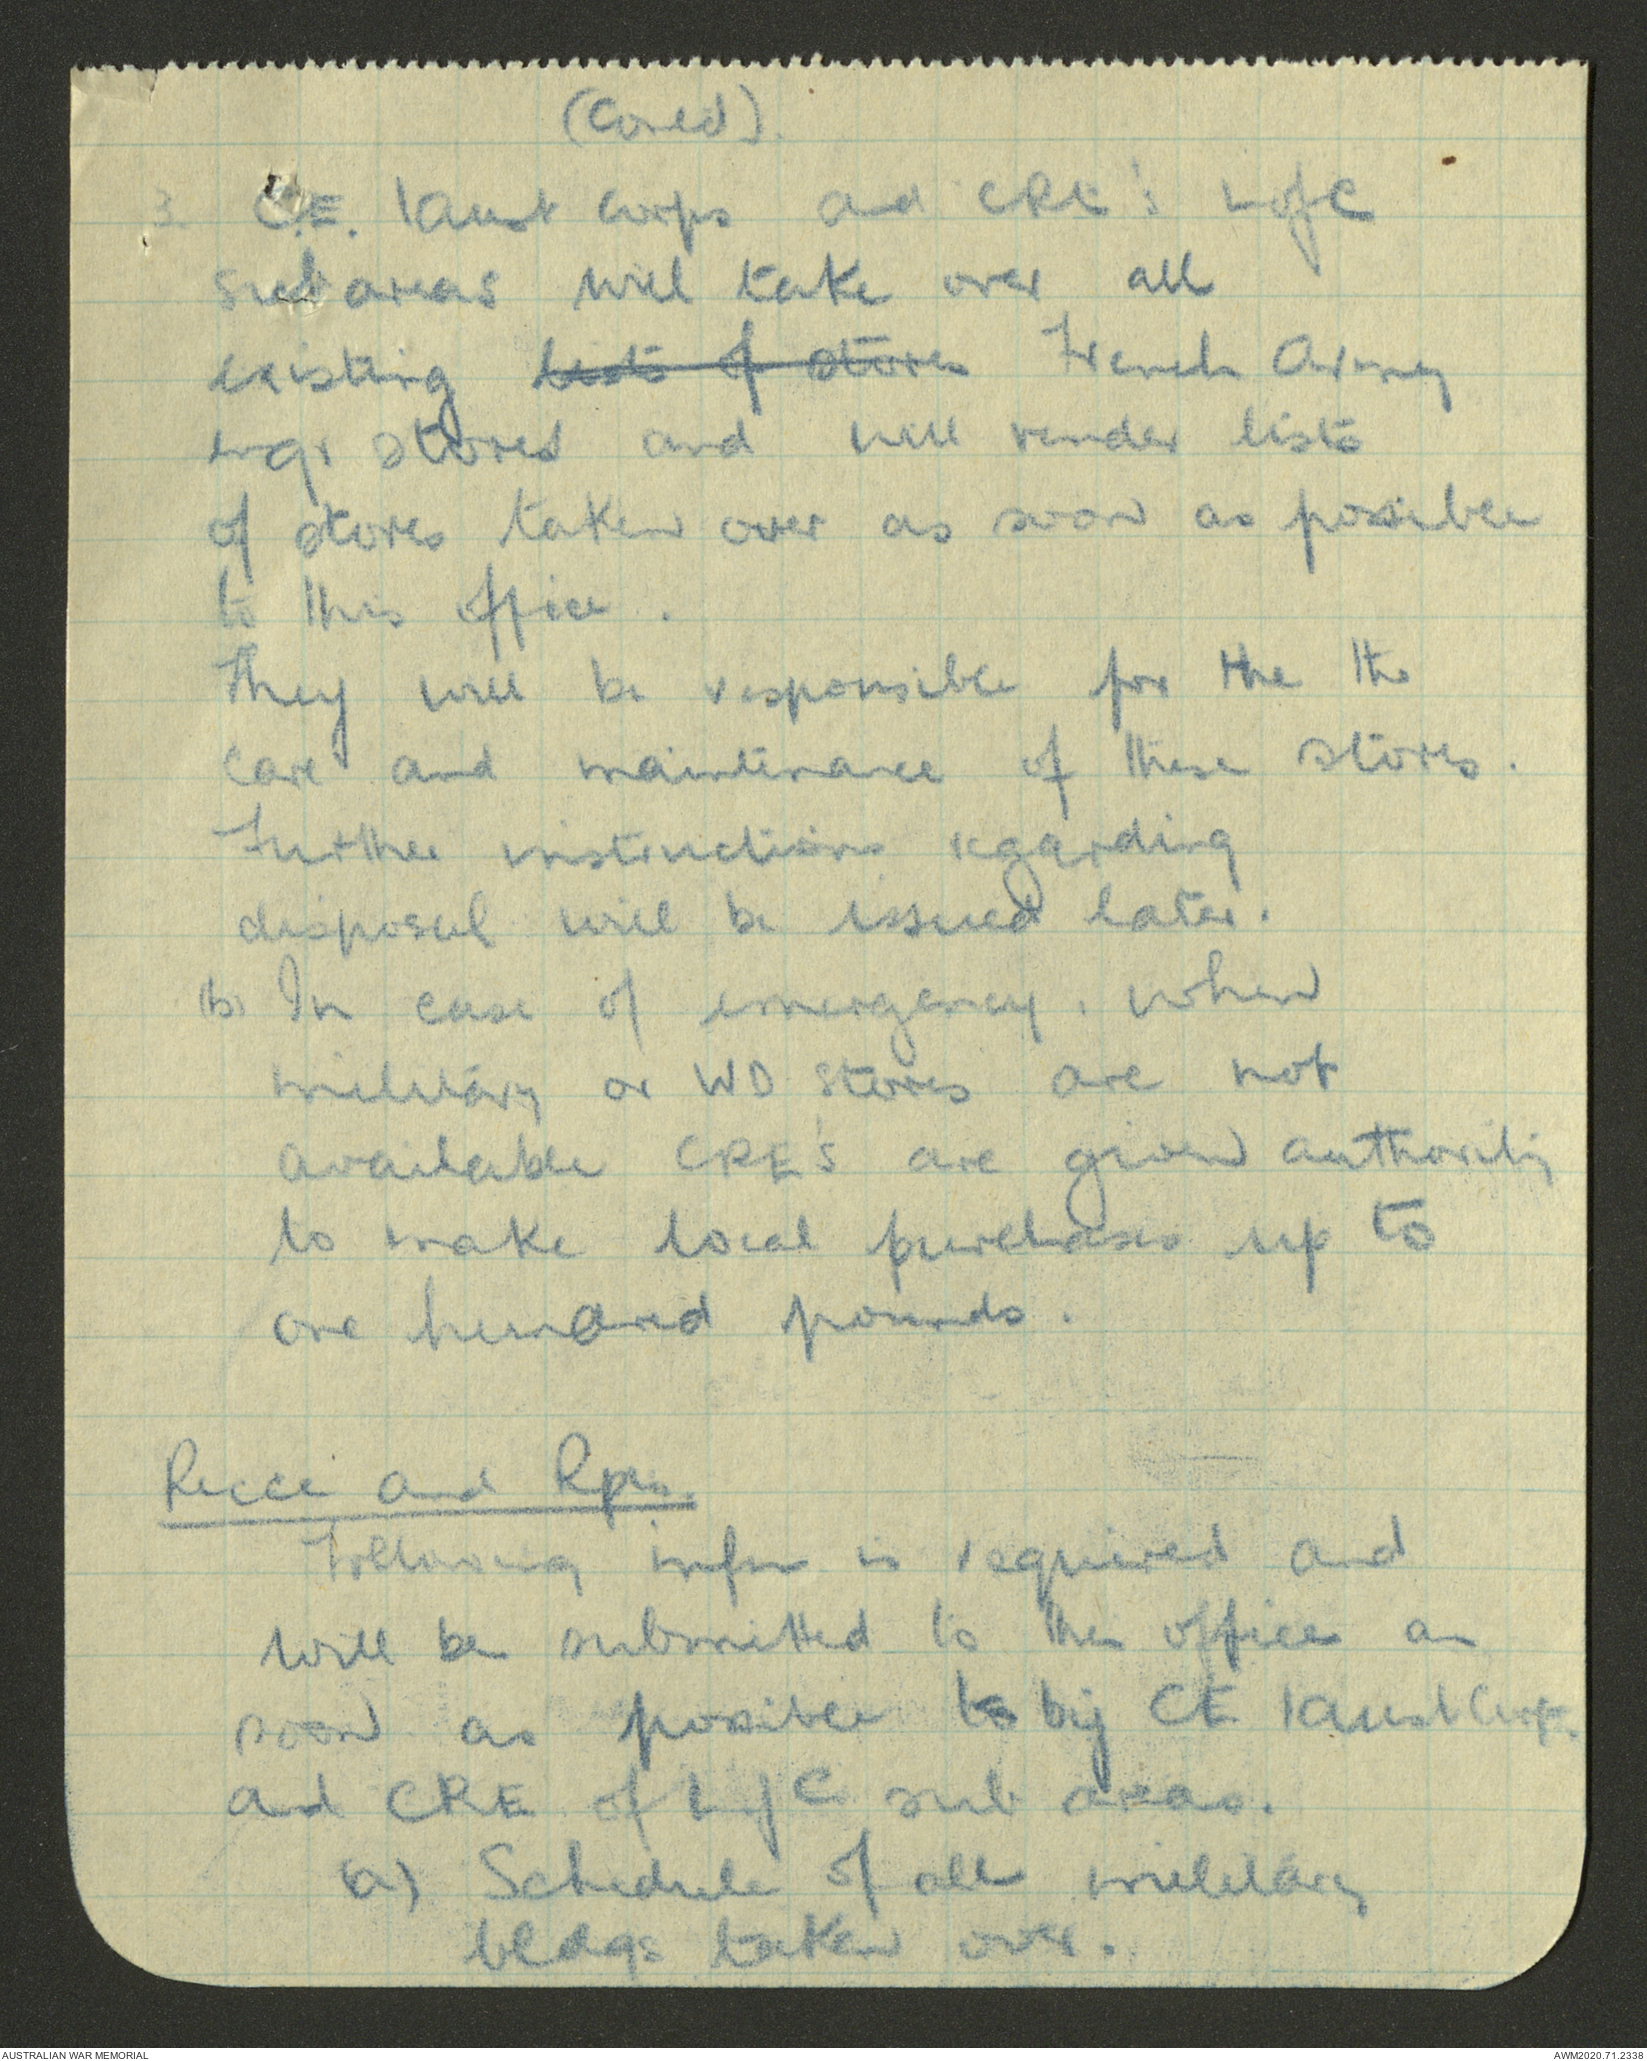 (Conted).
3. C.E. 1 Aust Corps and CRE's L of C
sub areas will take over all
existing lists of stores French Army
engr stores and will render lists
of stores taken over as soon as possible
to this office.
They will be responsible for the the
care and maintenance of these stores.
Further instructions regarding
disposal will be issued later.
(b) In case of emergency, when
military or WD stores are not
available CRE's are given authority
to make local purchases up to
one hundred pounds.
Recce and Rpts.
Following infm is required and
will be submitted to this office as
soon as possible to by CE 1 Aust Corps.
and CRE of L of C sub areas.
(a) Schedule of all military
bldgs taken over.
AUSTRALIAN WAR MEMORIAL
AWM2020.71.2338